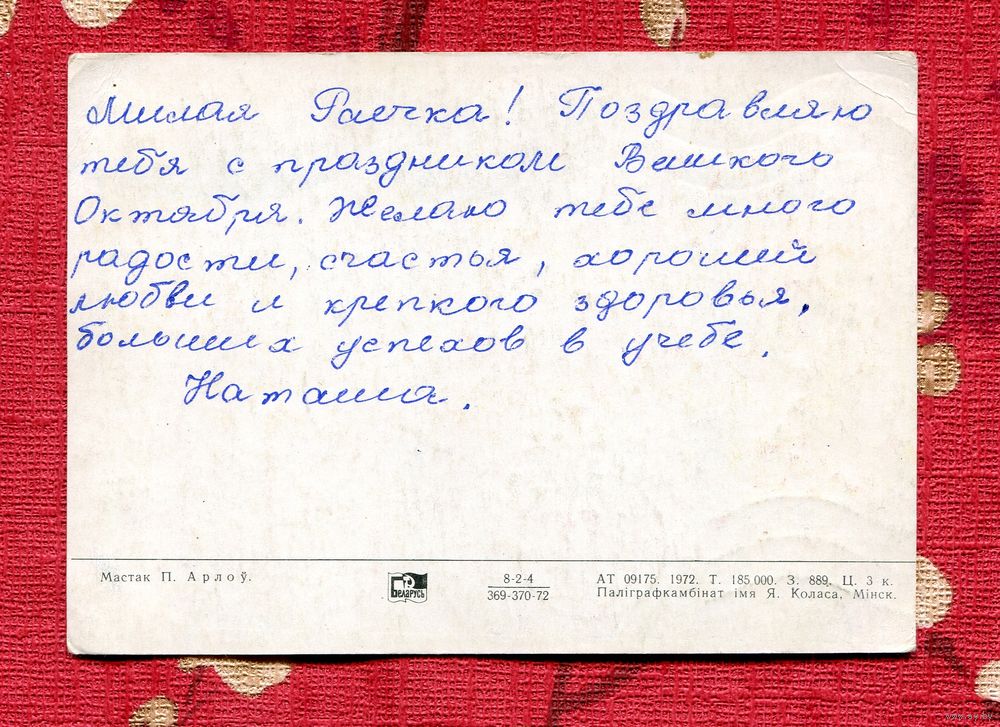 Милая Раечка! Поздравляю
тебя с праздником Великого
Октября. Желаю тебе много
радости, счастья, хороший
любви и крепкого здоровья,
больших успехов в учебе.
Наташа.
Мастак П. Арлоў.
Беларусь
8-2-4
369-370-72
АТ 09175. 1972. Т. 185 000. З. 889. Ц. 3 к.
Паліграфкамбінат імя Я. Коласа, Мінск.